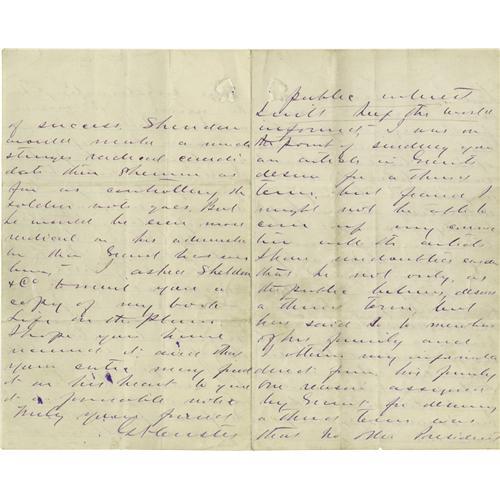 of success. Sheridan
would make a much
stronger radical candi
date than Sherman as
far as controlling the
soldier vote goes. But
he would be even more
radical in his administra
tion than Grant has ever
been. I asked Sheldon
& Co to send you a
copy of my book
Life on the Plains
I hope you have
received it and that
your critic may find
it in his heart to give
it a favorable notice
Truly your friend
G A Custer
public interest
I will keep the world
informed. I was on
the point of sending you
an article on Grants
desire for a third
term, but feared I
might not be able to
cover up my connec
tion with the article
I have undoubted
that he not only, as
the public believe, desires
a third term, but
has said so to members
of his family and
I obtain my
direct from his family
One reason assigned
by Grant for desiring
a third term was
that no other President